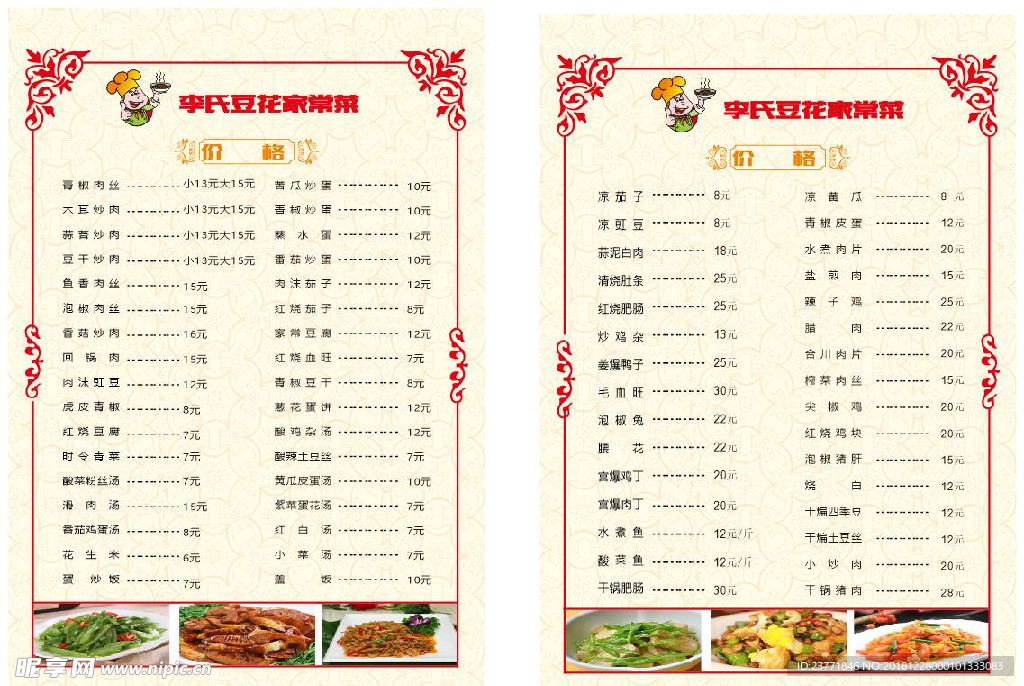 李氏豆花家常菜
价 格
青椒肉丝 小13元大15元
大豆炒肉 小13元大15元
蒜苔炒肉 小13元大15元
豆干炒肉 小13元大15元
鱼香肉丝 15元
泡椒肉丝 15元
香菇炒肉 16元
回锅肉 15元
肉沫豇豆 12元
虎皮青椒 8元
红烧豆腐 7元
时令青菜 7元
酸菜粉丝汤 7元
滑肉汤 15元
番茄鸡蛋汤 8元
花生米 6元
蛋炒饭 7元
苦瓜炒蛋 10元
香椒炒蛋 10元
蒸水蛋 12元
番茄炒蛋 10元
肉沫茄子 12元
红烧茄子 8元
家常豆腐 12元
红烧血旺 7元
青椒豆干 8元
葱花蛋饼 12元
酸鸡杂汤 12元
酸辣土豆丝 7元
黄瓜皮蛋汤 10元
紫菜蛋花汤 7元
红白汤 7元
小菜汤 7元
盖饭 10元
李氏豆花家常菜
价 格
凉茄子 8元
凉豇豆 8元
蒜泥白肉 18元
清烧肚条 25元
红烧肥肠 25元
炒鸡杂 13元
姜爆鸭子 25元
毛血旺 30元
泡椒兔 22元
腰花 22元
宫爆鸡丁 20元
宫爆肉丁 20元
水煮鱼 12元/斤
酸菜鱼 12元/斤
干锅肥肠 30元
凉黄瓜 8元
青椒皮蛋 12元
水煮肉片 20元
盐煎肉 15元
辣子鸡 25元
腊肉 22元
合川肉片 20元
榨菜肉丝 15元
尖椒鸡 20元
红烧鸡块 20元
泡椒猪肝 15元
烧白 12元
干煸四季豆 12元
干煸土豆丝 12元
小炒肉 20元
干锅猪肉 28元
昵享网 www.nipic.cn
ID:23771846 NO:20181228000101333083